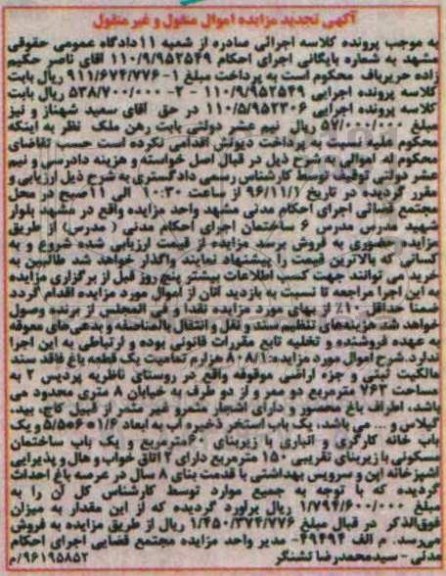 آگهی تجدید مزایده اموال منقول و غیر منقول
به موجب پرونده کلاسه اجرائی صادره از شعبه ۱۱دادگاه عمومی حقوقی
مشهد به شماره بایگانی اجرای احکام ۱۱۰/۹/۹۵۲۵۴۹ آقای ناصر حکیم
زاده حریرباف محکوم است به پرداخت مبلغ ۱- ۹۱۱/۶۷۴/۷۷۶ ریال بابت
کلاسه پرونده اجرایی ۱۱۰/۹/۹۵۲۵۴۹ -۲- ۵۳۸/۷۰۰/۰۰۰ ریال بابت
کلاسه پرونده اجرایی ۱۱۰/۵/۹۵۲۳۰۶ در حق آقای سعید شهناز و نیز
مبلغ ۵۲/۰۰۰/۰۰۰ ریال نیم عشر دولتی بابت رهن ملک نظر به اینکه
محکوم علیه نسبت به پرداخت دیونش اقدامی نکرده است حسب تقاضای
محکوم له اموالی به شرح ذیل در قبال اصل خواسته و هزینه دادرسی و نیم
عشر دولتی توقیف توسط کارشناس رسمی دادگستری به شرح ذیل ارزیابی و
مقرر گردیده در تاریخ ۹۶/۱۱/۱ از ساعت ۱۰:۳۰ الی ۱۱ صبح در محل
مجتمع قضائی اجرای احکام مدنی مشهد واحد مزایده واقع در مشهد بلوار
شهید مدرس مدرس ۶ ساختمان اجرای احکام مدنی ( مدرس) از طریق
مزایده حضوری به فروش برسد مزایده از قیمت ارزیابی شده شروع و به
کسانی که بالاترین قیمت را پیشنهاد نمایند واگذار خواهد شد طالبین به
خرید می توانند جهت کسب اطلاعات بیشتر پنج روز قبل از برگزاری مزایده
به این اجرا مراجعه تا نسبت به بازدید آنان از اموال مورد مزایده اقدام گردد
ضمنا حداقل ۱۰٪ از بهای مورد مزایده نقدا و فی المجلس از برنده وصول
خواهد شد هزینه‌های تنظیم سند و نقل و انتقال بالمناصفه و بدهی‌های معوقه
به عهده فروشنده و تخلیه تابع مقررات قانونی بوده و ارتباطی به این اجرا
ندارد. شرح اموال مورد مزایده: ۸۰۸/۱ هزارم تمامیت یک قطعه باغ فاقد سند
مالکیت ثبتی و جزء اراضی موقوفه واقع در روستای ناظریه پردیس ۲ به
مساحت ۷۶۳ مترمربع دو ممر و از دو طرف به خیابان ۸ متری محدود می
باشد، اطراف باغ محصور و دارای اشجار مثمرو غیر مثمر از قبیل کاج، بید،
گیلاس و ... می باشد، یک باب استخر ذخیره آب به ابعاد ۱/۶*۵/۵*۵ و یک
باب خانه کارگری و انباری با زیربنای ۶۰ مترمربع و یک باب ساختمان
مسکونی با زیربنای تقریبی ۱۵۰ مترمربع دارای ۲ اتاق خواب و هال و پذیرایی
آشپزخانه اپن و سرویس بهداشتی با قدمت بنای ۸ سال در عرصه باغ احداث
گردیده که با توجه به جمیع موارد توسط کارشناس کل آن را به
مبلغ ۱/۷۹۴/۶۰۰/۰۰۰ ریال براورد گردیده که از این مقدار به میزان
فوق‌الذکر در قبال مبلغ ۱/۴۵۰/۳۷۴/۷۷۶ ریال از طریق مزایده به فروش
می‌رسد. م الف ۴۹۴۹۴- مدیر واحد مزایده مجتمع قضایی اجرای احکام
مدنی - سیدمحمدرضا تشنگر ۹۶۱۹۵۸۵۲/م